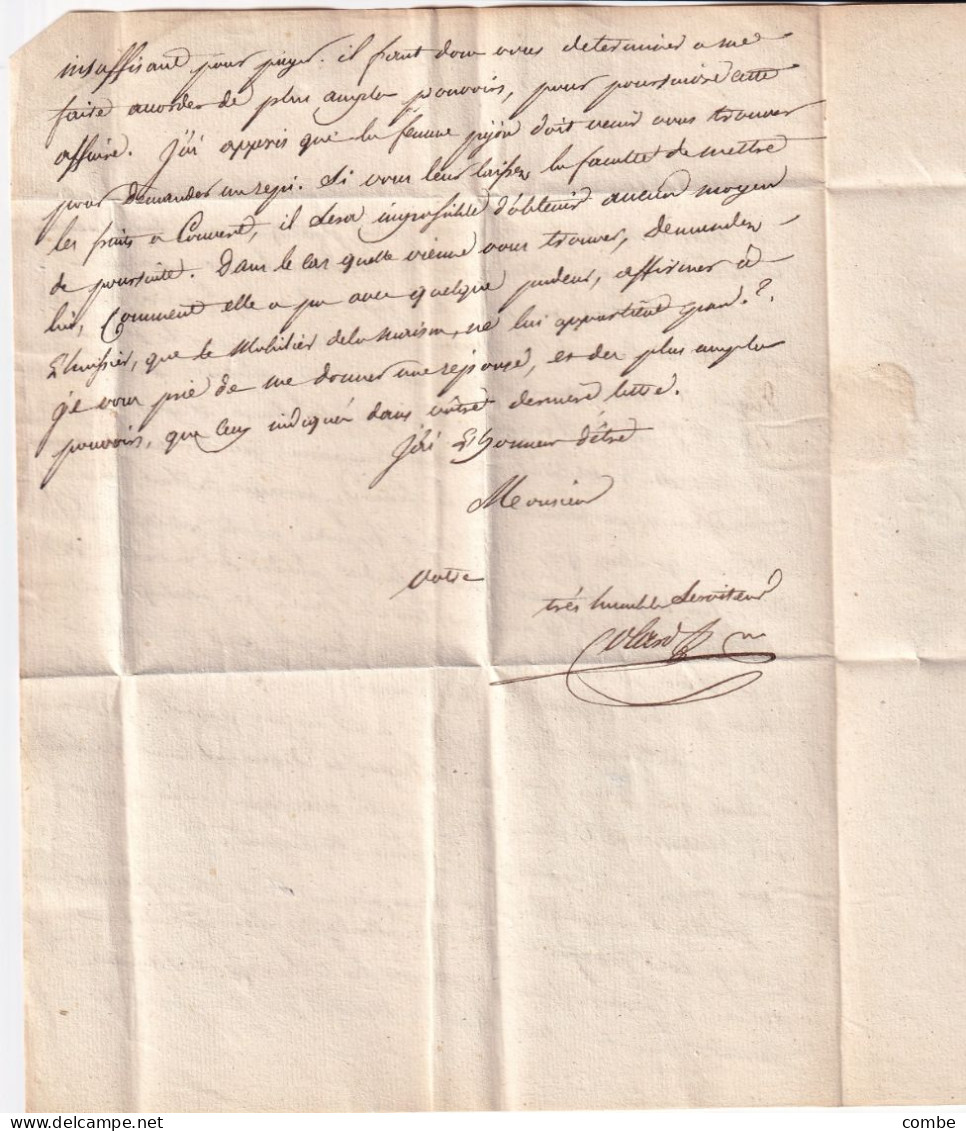 insuffisant pour payer. il faut donc vous determiner a me
faire accorder de plus amples pouvoirs, pour poursuivre cette
affaire. J'ai appris que la femme pijon doit venir vous trouver
pour demander un repi. Si vous leur laissez la faculté de mettre
les fruits a Couvert, il Sera impossible d'obtenir aucun moyen
de poursuite. Dans le cas quelle vienne vous trouver, demandez
lui, Comment elle a pu avec quelque pudeur, affirmer à
L'huissier, que le Mobilier de la maison, ne lui appartient pas. ?.
je vous prie de me donner une réponse, et des plus amples
pouvoirs, que ceux indiqué dans vôtre derniere lettre.
J'ai L'honneur d'être
Monsieur
votre
très humble Serviteur
Colard
delcampe.net
combe